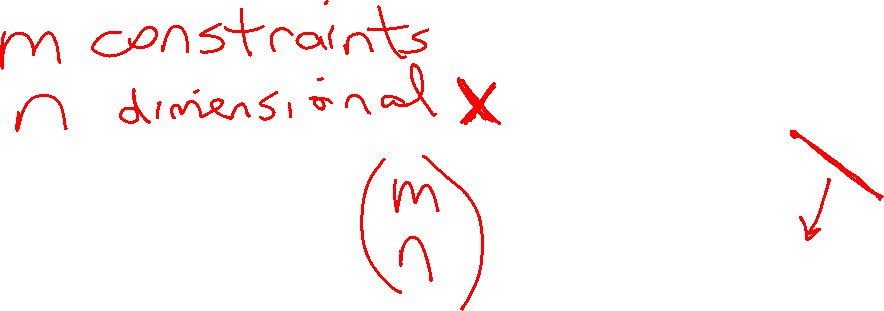 m constraints
n dimensional x
(m
n)